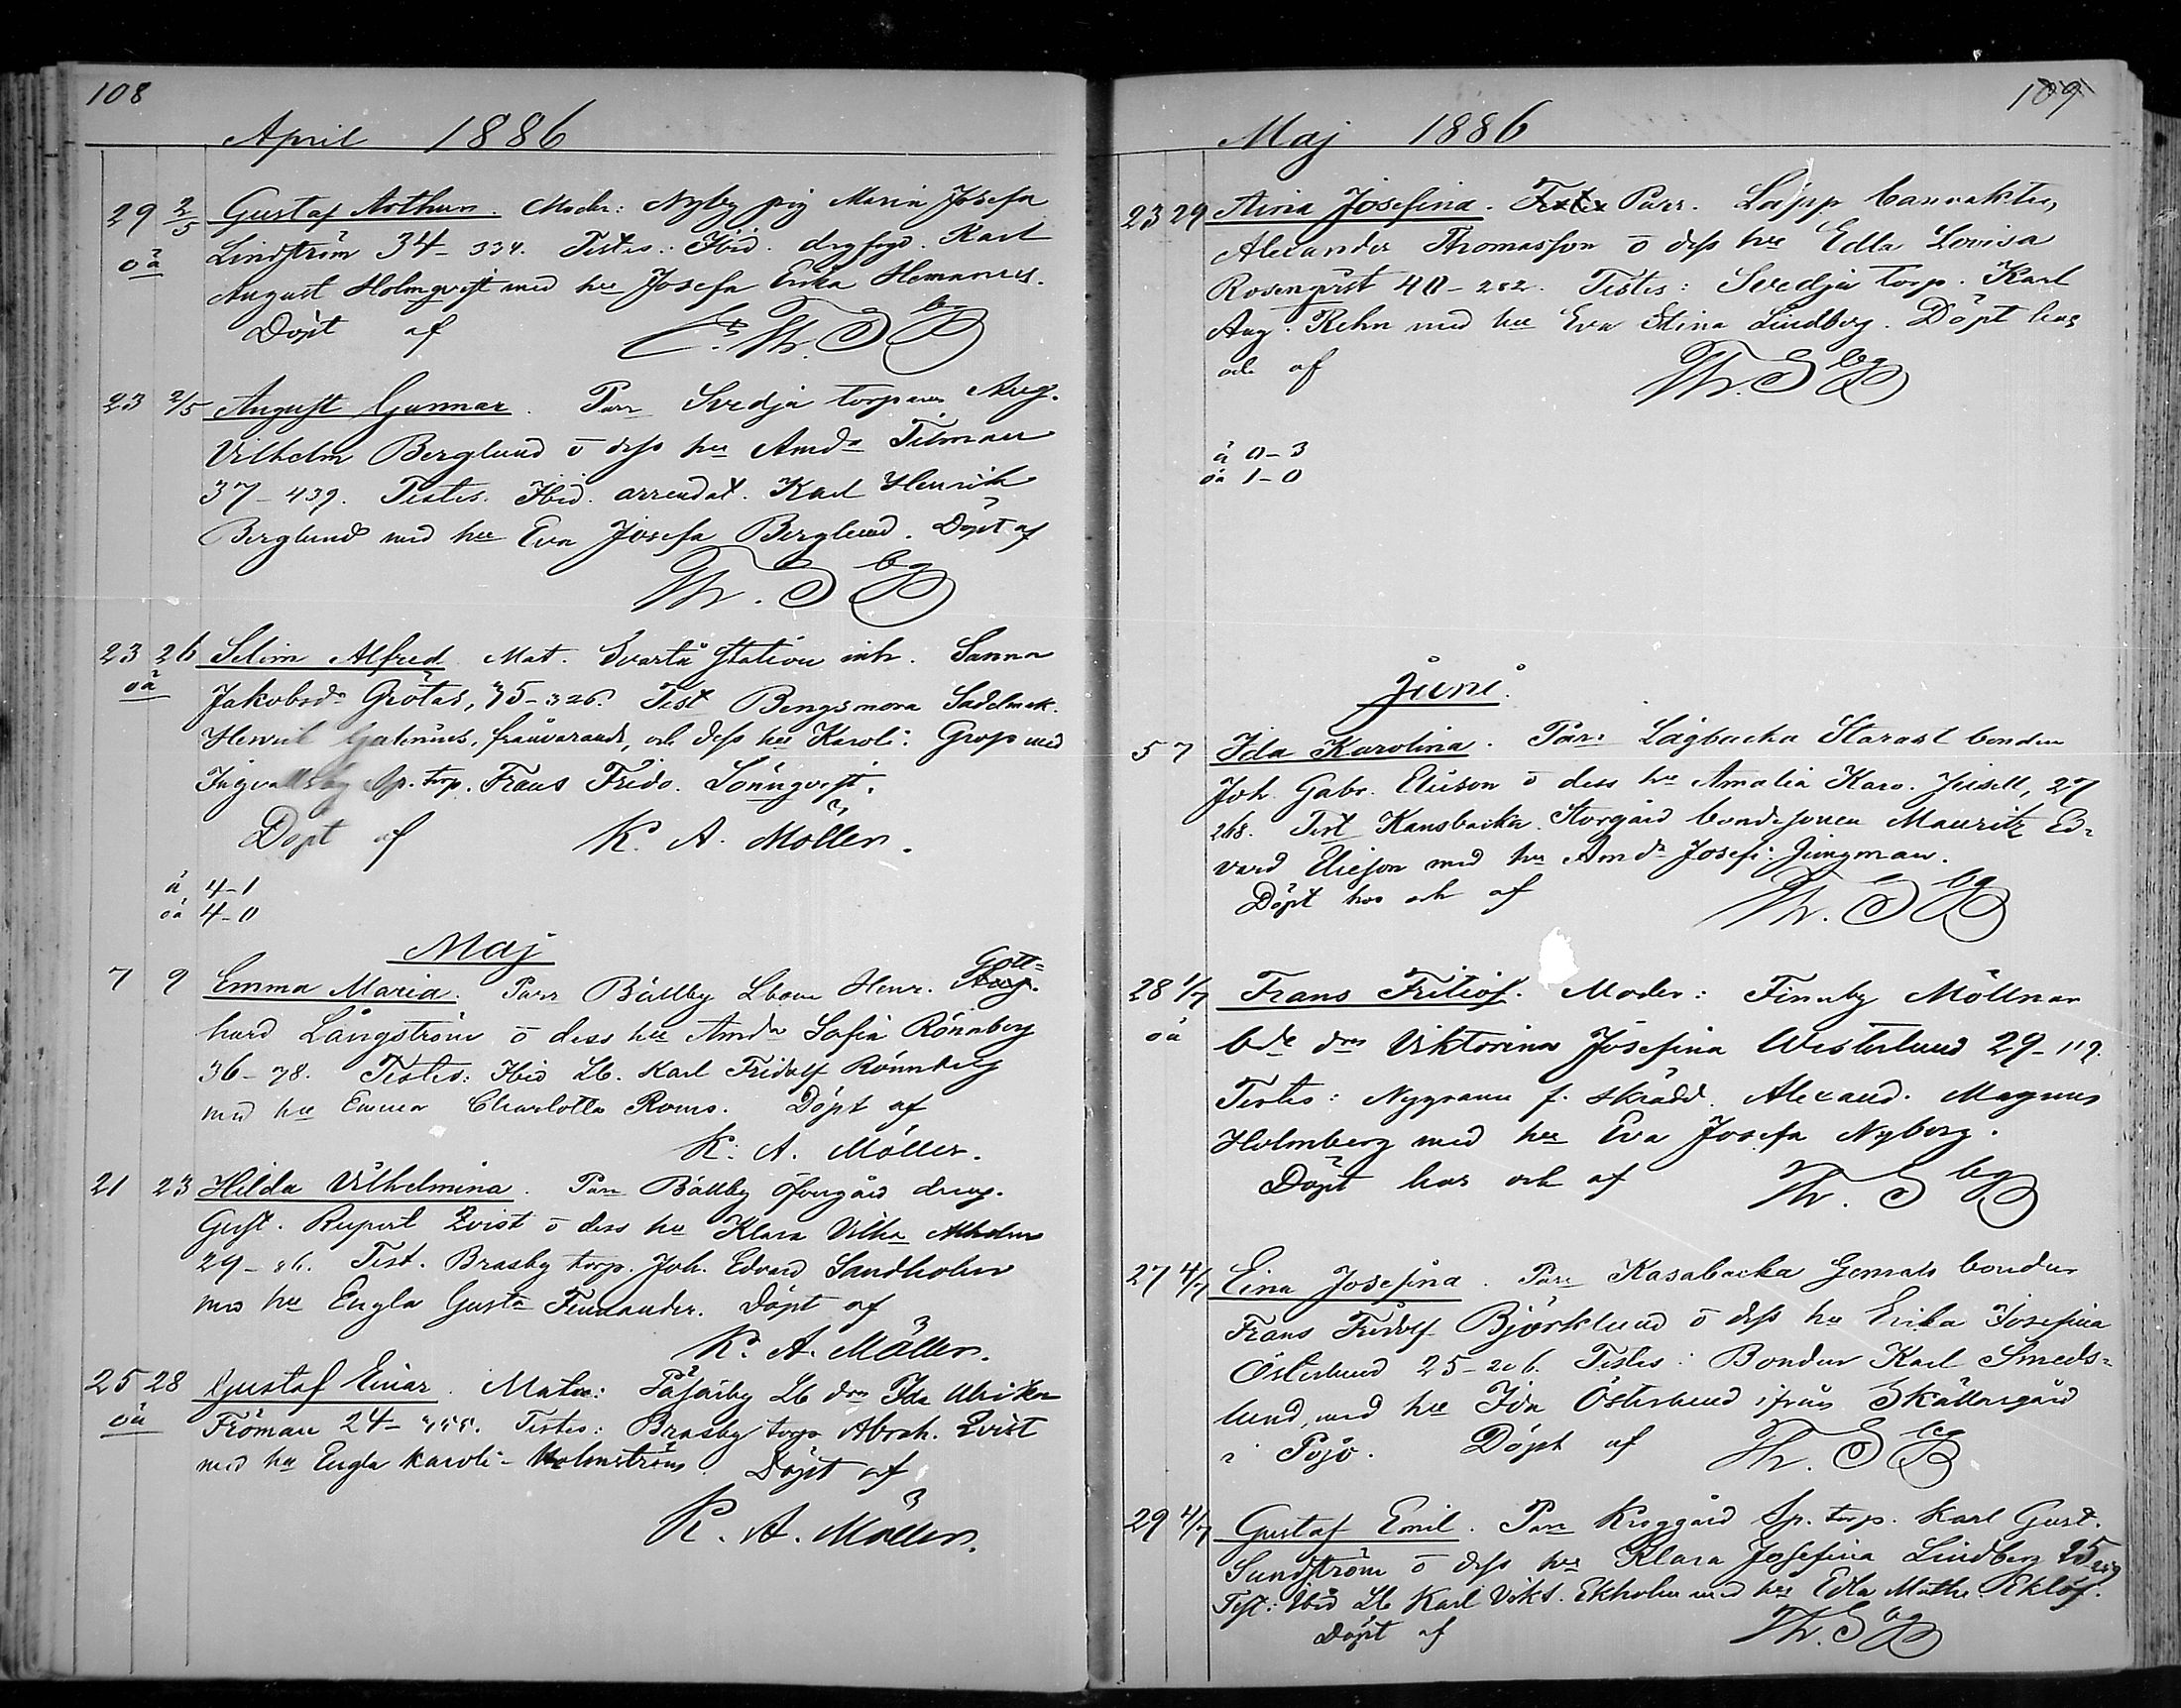 108
April 1886
29 2/5 Gustaf Arthur. Moder: Nyby pig Maria Josefa
oä Lindström 34-334. Testes: Ibid. drgfogd. Karl
August Holmqvist med hu Josefa Erika Hemanius.
Döpt af Th. S bg
23 2/5 August Gunnar. Parr Svedja torparen Aug.
Vilhelm Berglund o dess hu Amda Tilman
37-439. Testes. Ibid. arrendat. Karl Henrik
Berglund med hu Eva Josefa Berglund. Döpt af
Th. S bg
23 26 Selim Alfred. Mat. Svartå station inh. Sanna
oä Jakobsdr Grotas, 35-326. Test Bengsmora Sadelmak.
Henrik frånvarande, och dess hu Karoli. Grop med
Sp. torp. Frans Frido. Lönnqvist.
Döpt af K. A. Möller.
ä 4-1
oä 4-0
Maj
7 9 Emma Maria. Parr Bällby Lbom Henr. Gott=
hard Långström o dess hu Amda Sofia Rönnberg
36-78. Testes: Ibid Lb. Karl Fridolf Rönnberg
med hu Emma Charlotta Roms. Döpt af
K. A. Möller.
21 23 Hilda Vilhelmina. Parr Bällby Öfvergård dreng.
Gust. Rupert Qvist o dess hu Klara Vilha Ahlholm
29-86. Test. Brasby torp. Joh. Edvard Sandholm
med hu Engla Gusta Finnander. Döpt af
K. A. Möller.
25 28 Gustaf Einar. Mater: Påsarby Lb drs Ida Ulrika
oä Fröman 24- Testes: Brasby torp Abrah. Qvist
med hu Engla Karoli- Holmström. Döpt af
K. A. Möller.
109
Maj 1886
23 29 Aina Josefina. Parr. Läpp banvakten,
Alexander Thomasson o dess hu Edla Lovisa
Rosenqvist 40-282. Testes: Svedja torp. Karl
Aug. Rehn med hu Eva Stina Lindberg. Döpt hos
och af Th. S bg
ä 0-3
oä 1-0
Juni.
5 7 Ida Karolina. Parr Lågbacka Starast bonden
Joh. Gabr. Elieson o dess hu Amalia Karo. 27
268. Test Kansbacka Storgård bondesonen Mauritz Ed=
vard Elieson med hu Amda Josefi. Jungman.
Döpt hos och af Th. S bg
28 1/7 Frans Fritiof. Moder: Finnby Möllnar
oä bde drs Viktorina Josefina Westerlund 29-119.
Testes: Nygrann f. skrädd. Alexand. Magnus
Holmberg med hu Eva Josefa Nyberg.
Döpt hos och af Th. S bg
27 4/7 Eina Josefina. Parr Kasabacka Gemals bonden
Frans Fridolf Björklund o dess hu Erika Josefina
Österlund 25-206. Testes: Bonden Karl Smeds=
lund, med hu Ida Österlund ifrån Skällargård
i Pojo. Döpt af Th. S bg
29 4/7 Gustaf Emil. Parr Kroggård Sp. torp. Karl Gust.
Sundström o dess hu Klara Josefina Lindberg 25-
Test: Ibid Lb Karl Vikt. Ekholm med hu Edla Mathi. Eklöf.
Döpt af Th. S bg